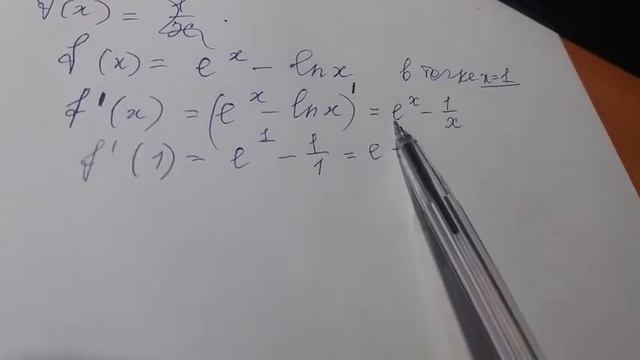 f(x) =
f(x) = e^x - ln x в точке x=1
f'(x) = (e^x - ln x)' = e^x - 1/x
f'(1) = e^1 - 1/1 = e -